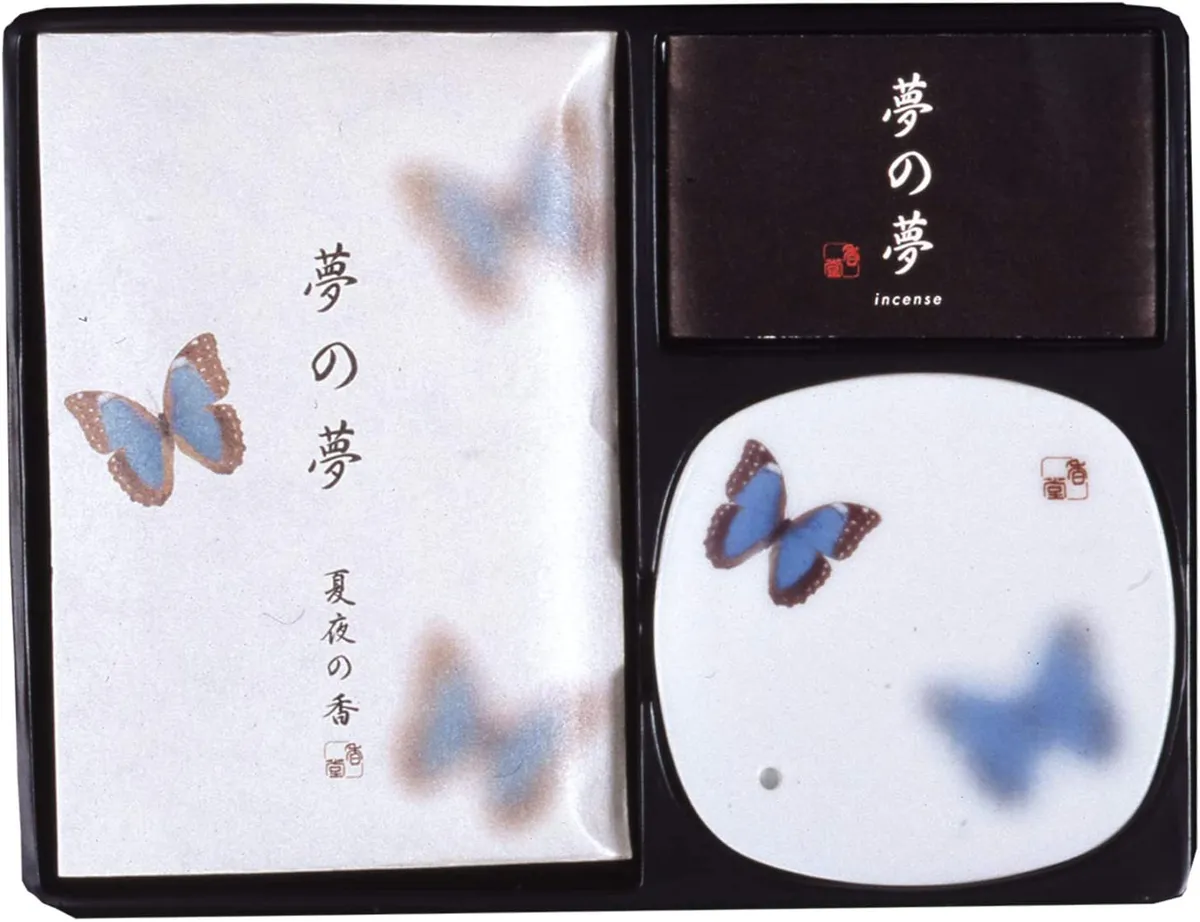 夢の夢
夏夜の香
香堂
夢の夢
香堂
incense
香堂